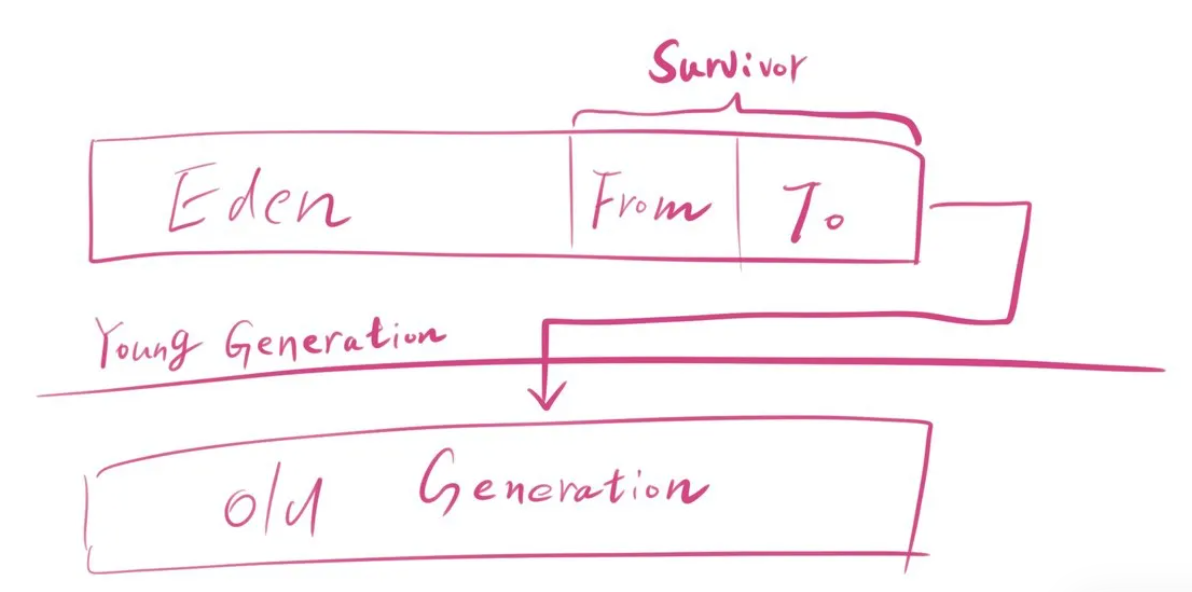 Survivor
Eden From To
Young Generation
old Generation